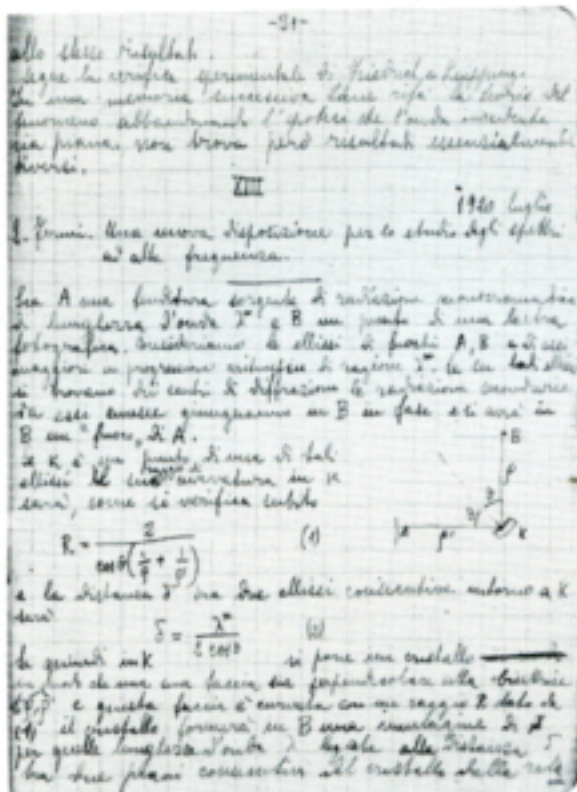 -31-
allo stesso risultato.
Segue la verifica sperimentale di Friedrich e Knipping.
In una memoria successiva Laue rifà la teoria del
fenomeno abbandonando l'ipotesi che l'onda incidente
sia piana, non trova però risultati essenzialmente
diversi.
XIII
1920 luglio
E. Fermi. Una nuova disposizione per lo studio degli spettri
ad alta frequenza.
Sia A una fenditura sorgente di radiazione monocromatica
di lunghezza d'onda λ e B un punto di una lastra
fotografica. Consideriamo le ellissi di fuochi A, B e di assi
maggiori in progressione aritmetica di ragione λ. Se su tali ellissi
si trovano dei centri di diffrazione le radiazioni secondarie
da esse emesse giungeranno in B in fase e si avrà in
B un "fuoco" di A.
Se K è un punto di una di tali
ellissi il suo raggio di curvatura in K
sarà, come si verifica subito
R = 2 / (cos θ (1/ρ + 1/ρ')) (1)
B
ρ
K
ρ'
e la distanza δ tra due ellissi consecutive intorno a K
sarà
δ = λ / (2 cos θ) (2)
Se quindi in K si pone un cristallo
in modo che una sua faccia sia perpendicolare alla bisettrice
e questa faccia è curvata con un raggio R dato da
(1) il cristallo formerà in B una immagine di A
per quelle lunghezze d'onda λ legate alla distanza δ
tra due piani consecutivi del cristallo dalla rela